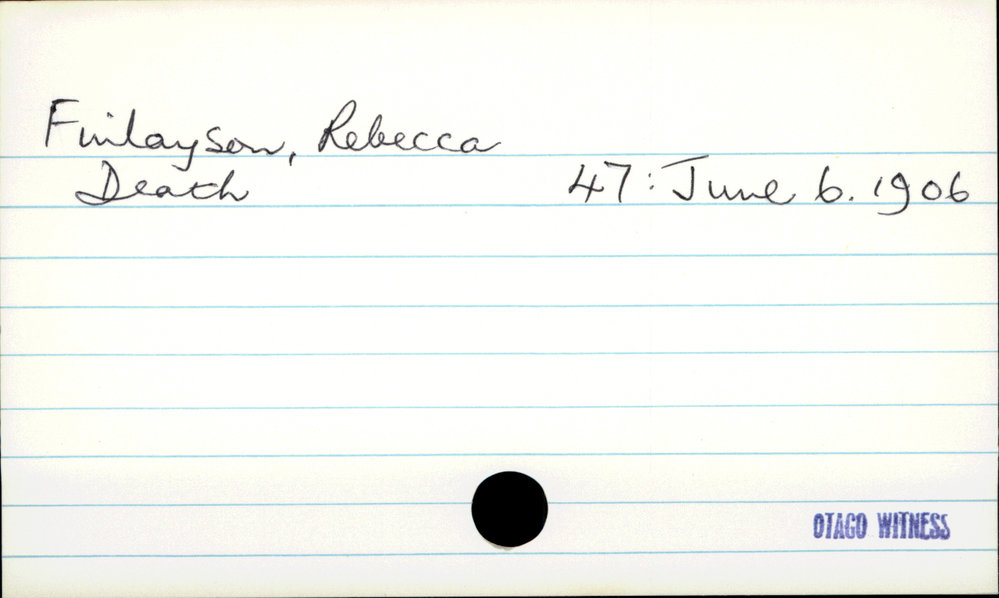 Finlayson, Rebecca
Death 47: June 6. 1906
OTAGO WITNESS